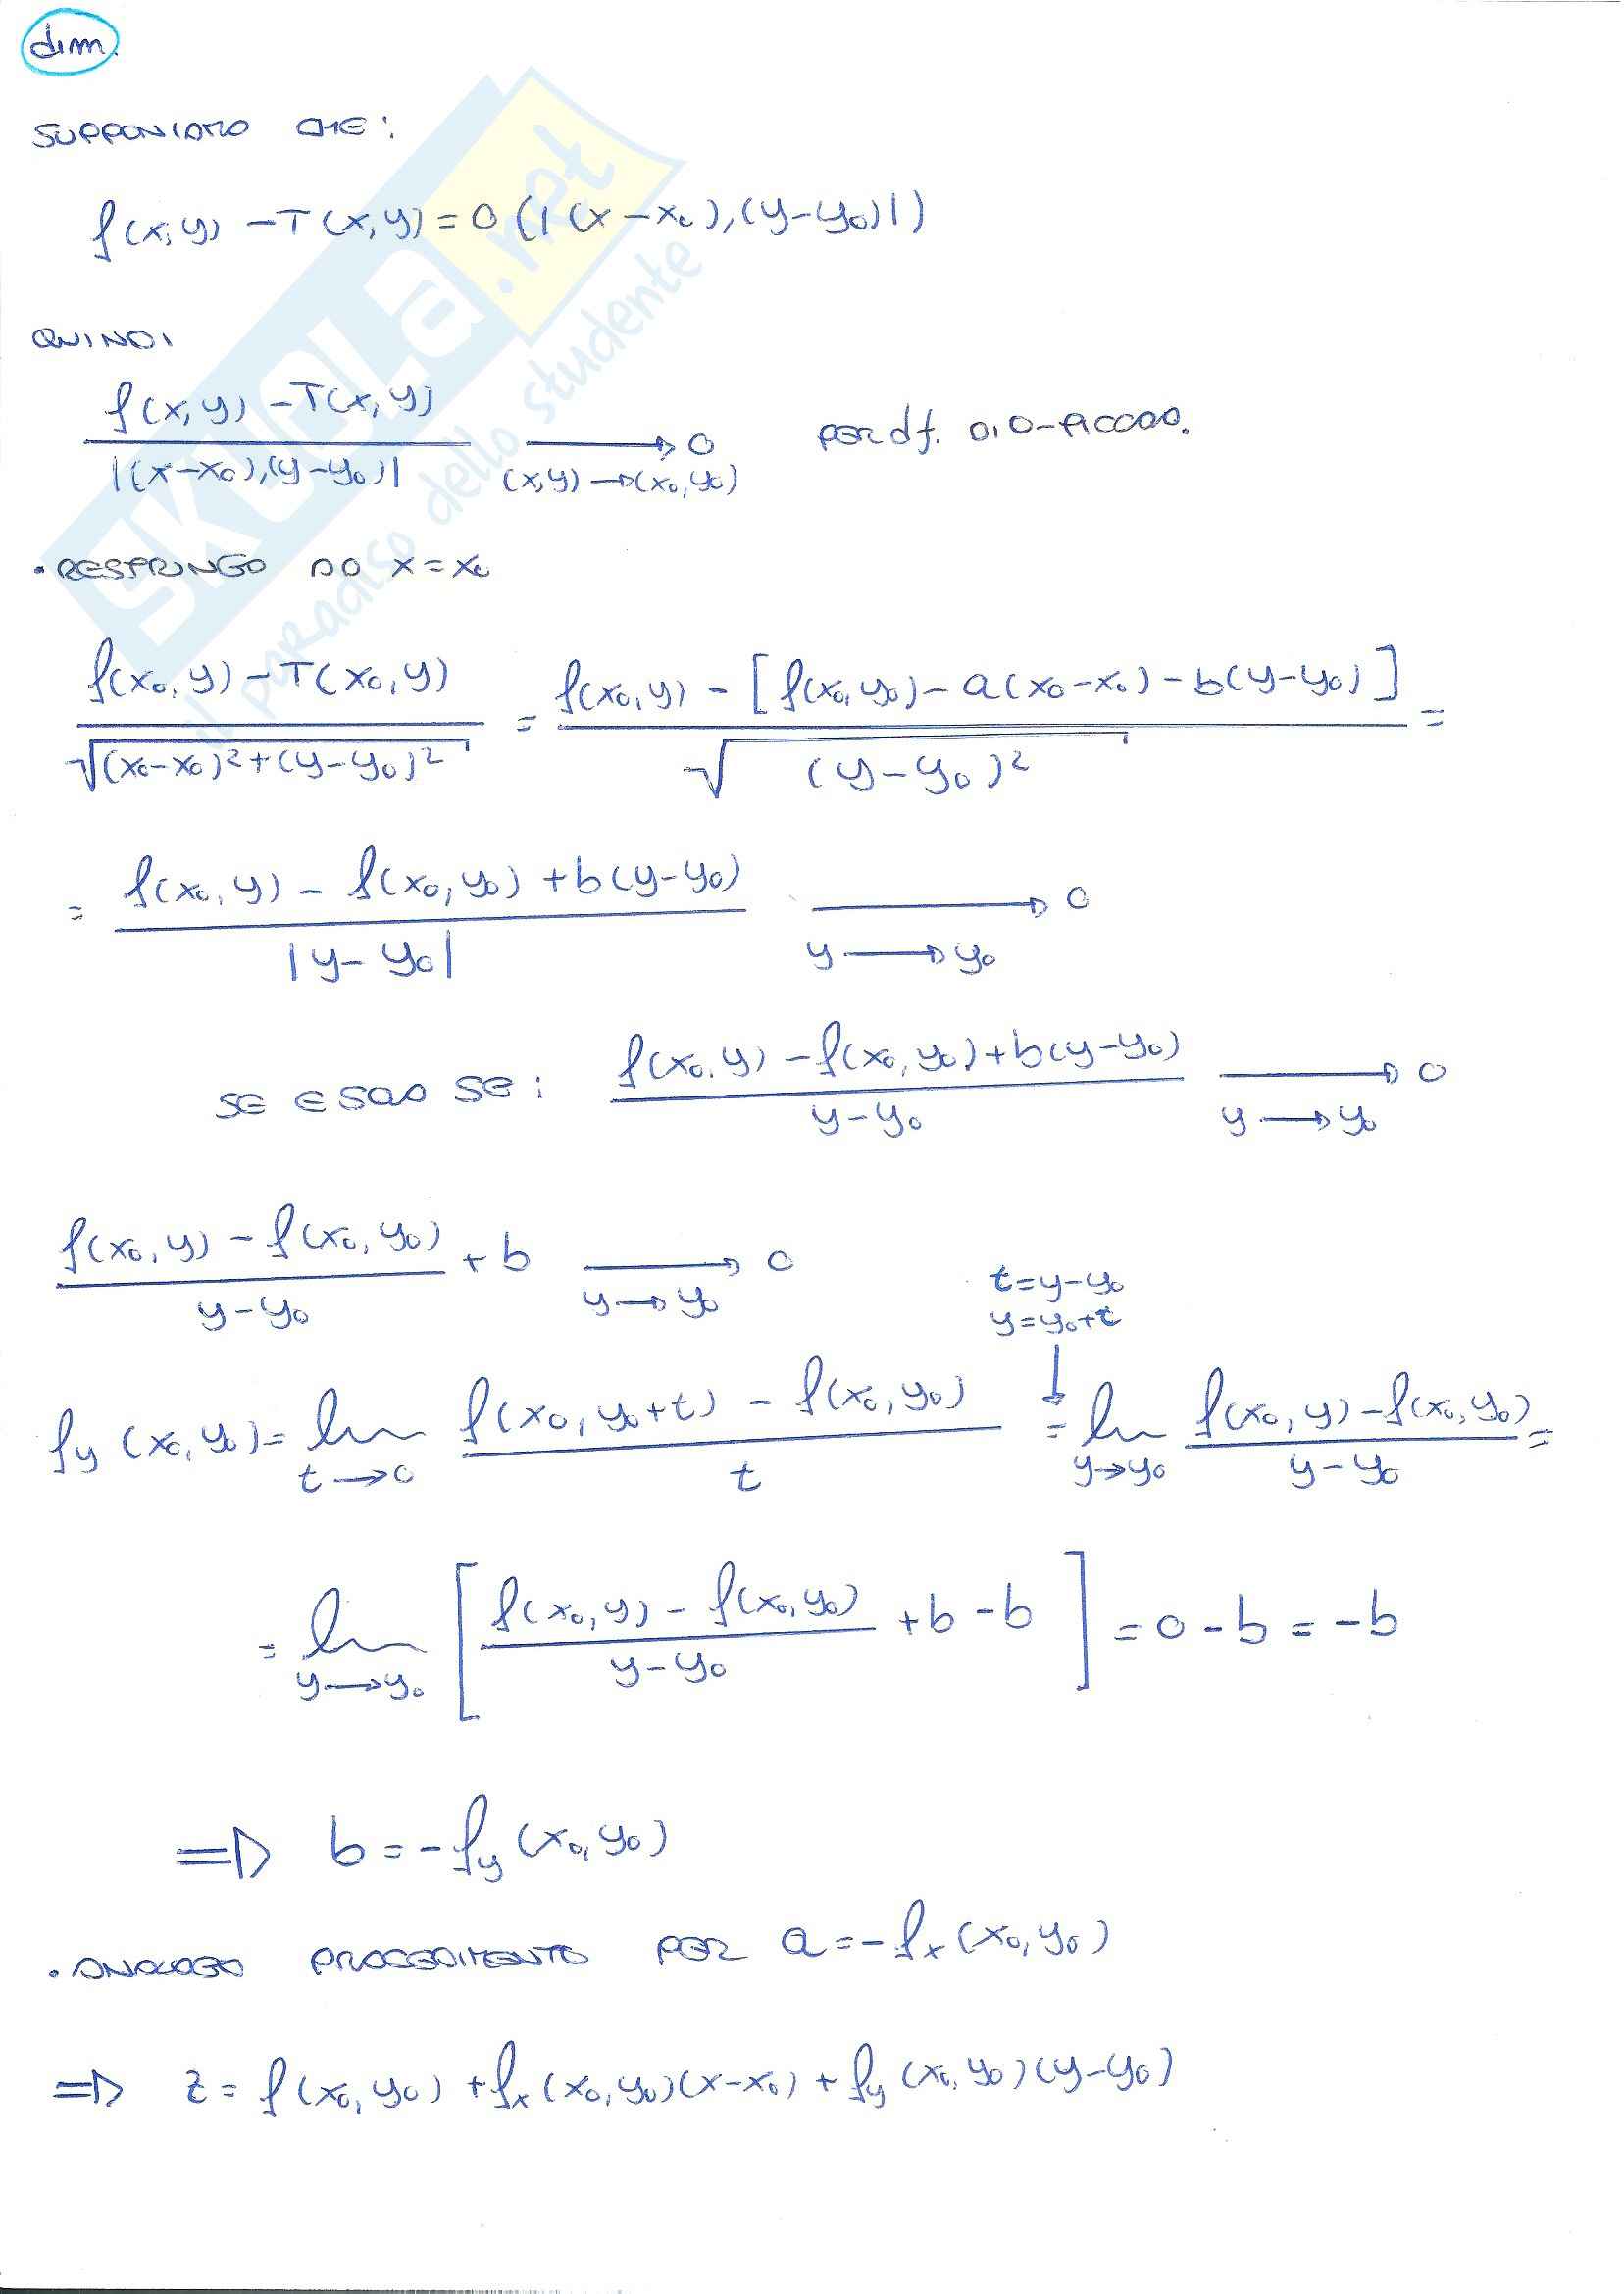 dim.
SUPPONIAMO CHE:
f(x,y) - T(x,y) = o(|(x-x₀),(y-y₀)|)
QUINDI
f(x,y) - T(x,y) / |(x-x₀),(y-y₀)| → 0 (x,y)→(x₀,y₀) PER df. DI O-PICCOLO.
• RESTRINGO AD x=x₀
f(x₀,y) - T(x₀,y) / √(x₀-x₀)²+(y-y₀)² = f(x₀,y) - [f(x₀,y₀) - a(x₀-x₀) - b(y-y₀)] / √(y-y₀)² =
= f(x₀,y) - f(x₀,y₀) + b(y-y₀) / |y-y₀| → 0 y→y₀
SE E SOLO SE: f(x₀,y) - f(x₀,y₀) + b(y-y₀) / y-y₀ → 0 y→y₀
f(x₀,y) - f(x₀,y₀) / y-y₀ + b → 0 y→y₀
t=y-y₀
y=y₀+t
↓
fy(x₀,y₀) = lim t→0 f(x₀,y₀+t) - f(x₀,y₀) / t = lim y→y₀ f(x₀,y) - f(x₀,y₀) / y-y₀ =
= lim y→y₀ [ f(x₀,y) - f(x₀,y₀) / y-y₀ + b - b ] = 0 - b = -b
⇒ b = -fy(x₀,y₀)
• ANALOGO PROCEDIMENTO PER a = -fx(x₀,y₀)
⇒ z = f(x₀,y₀) + fx(x₀,y₀)(x-x₀) + fy(x₀,y₀)(y-y₀)
SKUOLA.net
il paradiso dello studente